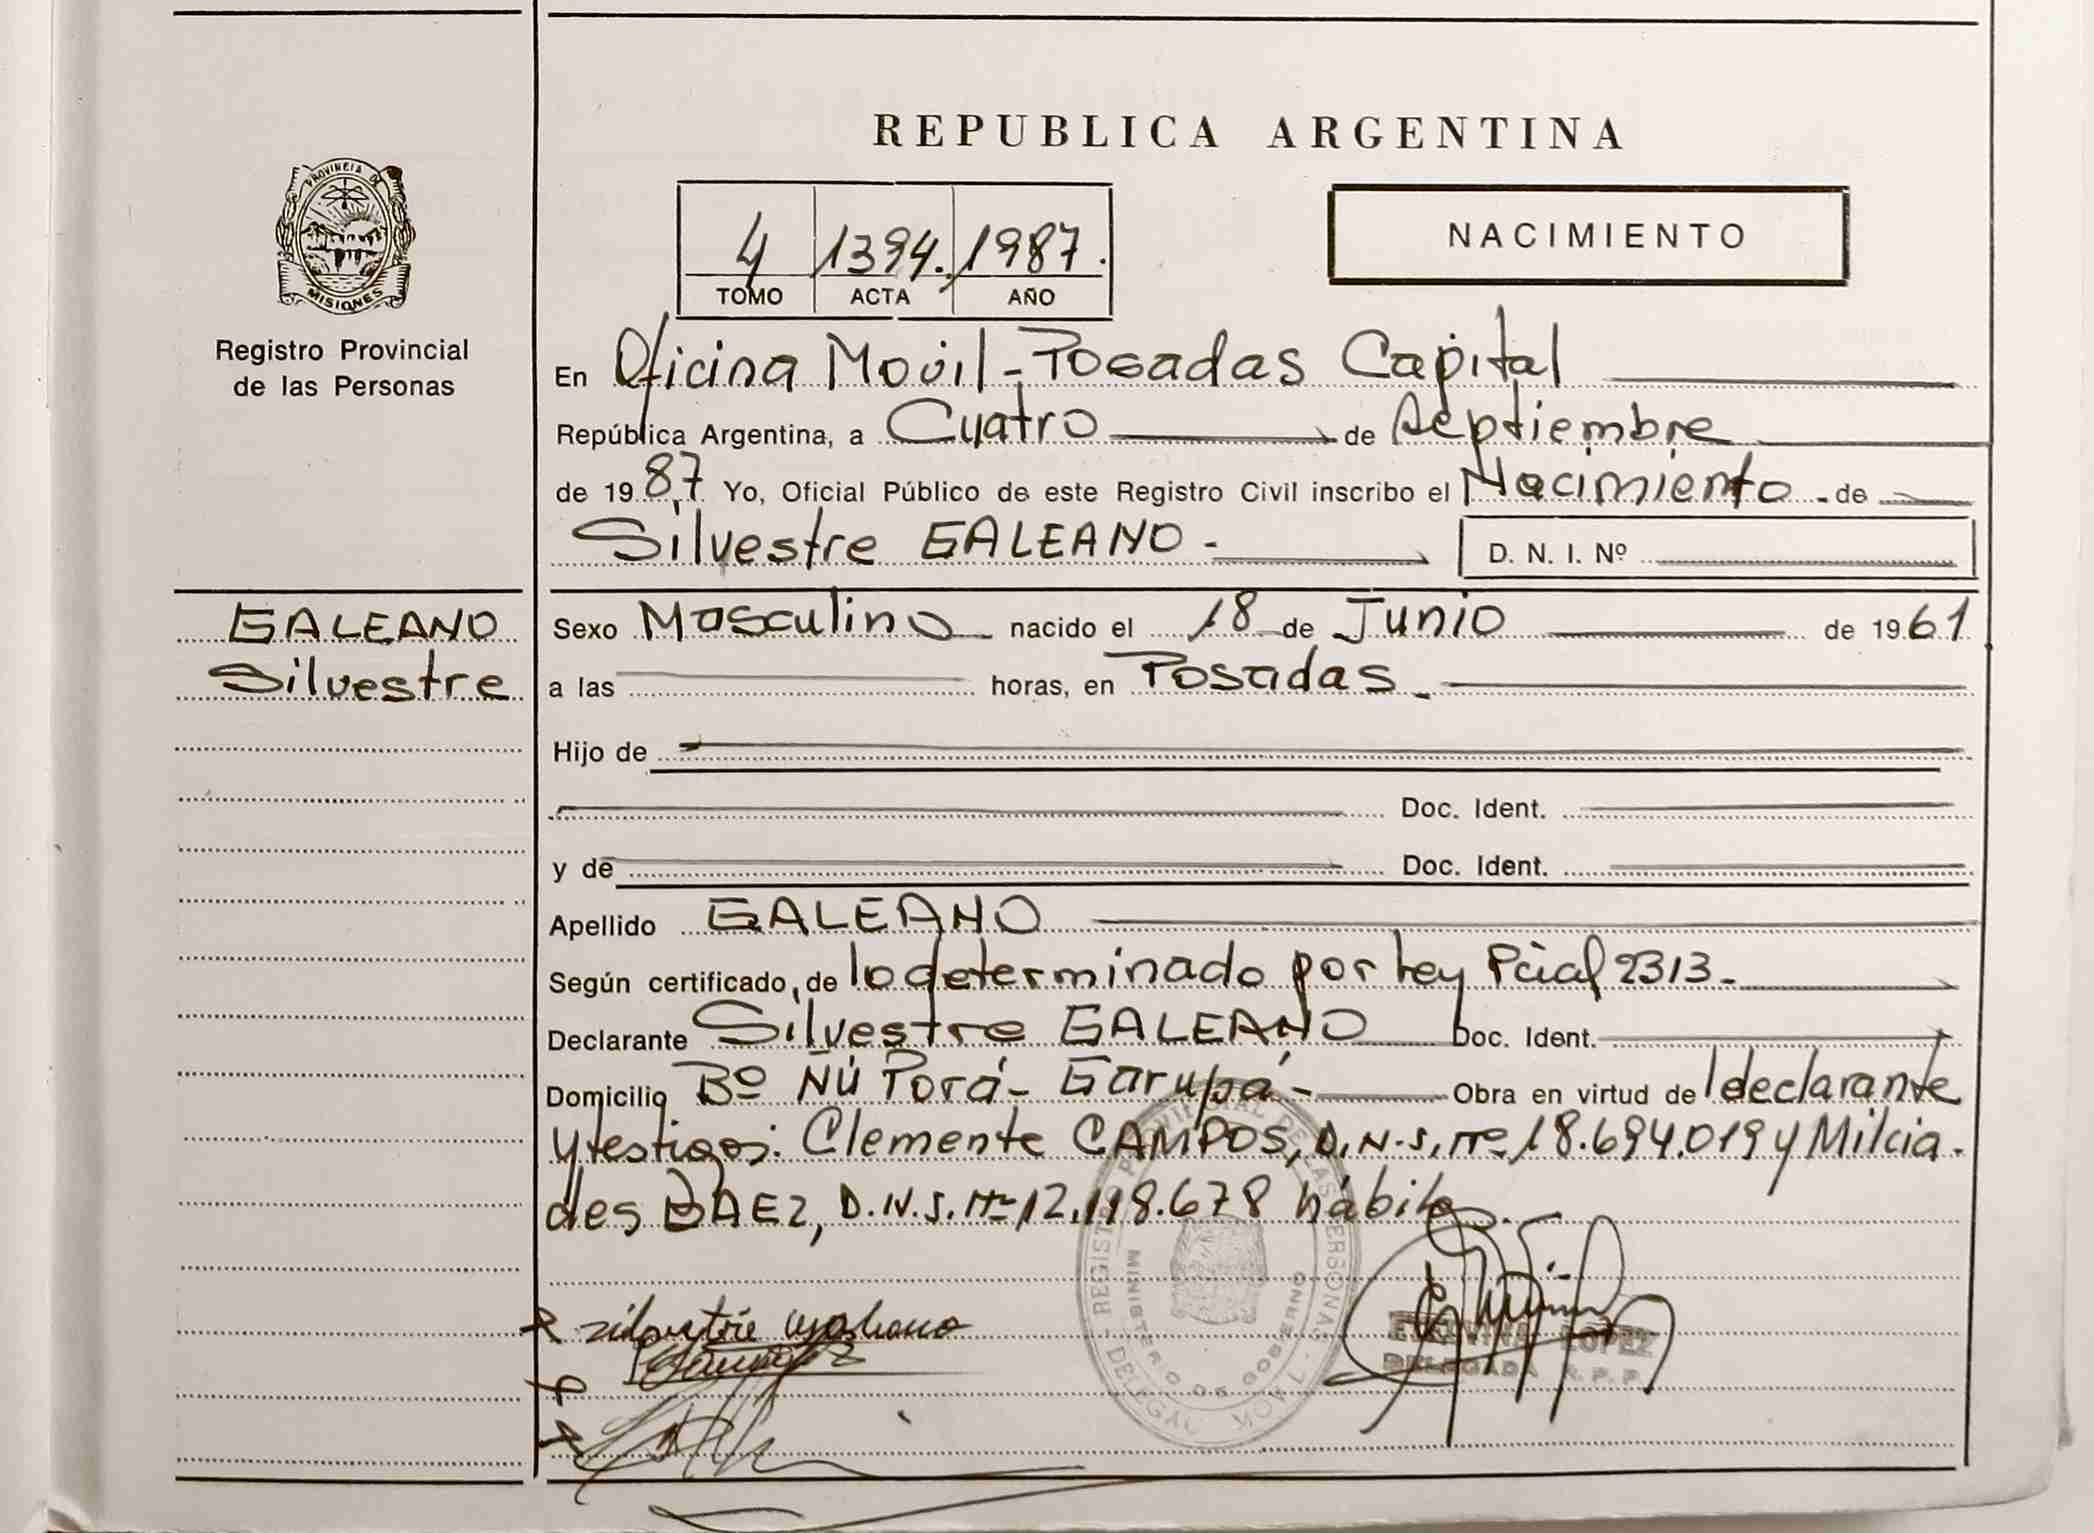 REPUBLICA ARGENTINA
PROVINCIA DE
MISIONES
Registro Provincial
de las Personas
4 1394. 1987.
TOMO ACTA AÑO
NACIMIENTO
En Oficina Movil - Posadas Capital
República Argentina, a Cuatro de Septiembre
de 1987. Yo, Oficial Público de este Registro Civil inscribo el Nacimiento - de
Silvestre GALEANO -
D. N. I. Nº
GALEANO
Silvestre
Sexo Masculino nacido el 18 de Junio de 1961
a las horas, en Posadas -
Hijo de
Doc. Ident.
y de Doc. Ident.
Apellido GALEANO
Según certificado, de lo determinado por Ley Pcial 2313 -
Declarante Silvestre GALEANO Doc. Ident.
Domicilio Bº ÑÚ Porá - Garupá - Obra en virtud de l declarante
y testigos: Clemente CAMPOS, D.N.I. Nº 18.694.019 y Milcia-
des BAEZ, D.N.I. Nº 12.118.678 hábiles.
REGISTRO PROVINCIAL DE LAS PERSONAS
MINISTERIO DE GOBIERNO
LOPEZ
DELEGADA R. P. P.